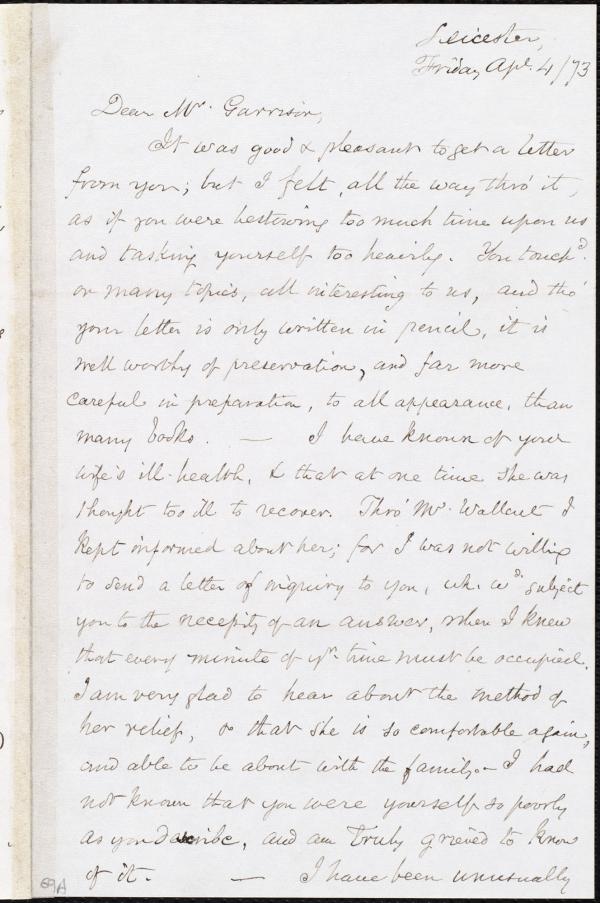 Leicester,
Friday Apl. 4/73
Dear Mr. Garrison,
It was good & pleasant to get a letter
from you; but I felt, all the way thro' it,
as if you were bestowing too much time upon us
and tasking yourself too heavily. You touchd.
on many topics, all interesting to us, and tho'
your letter is only written in pencil, it is
well worthy of preservation, and far more
careful in preparation, to all appearance, than
many books. — I have known of your
wife's ill-health, & that at one time she was
thought too ill to recover. Thro' Mr. Wallcut I
kept informed about her; for I was not willing
to send a letter of inquiry to you, wh. wd. subject
you to the necessity of an answer, when I knew
that every minute of yr. time must be occupied.
I am very glad to hear about the method of
her relief, & that she is so comfortable again,
and able to be about with the family. I had
not known that you were yourself so poorly
as you describe, and am truly grieved to know
of it. — I have been unusually
69A